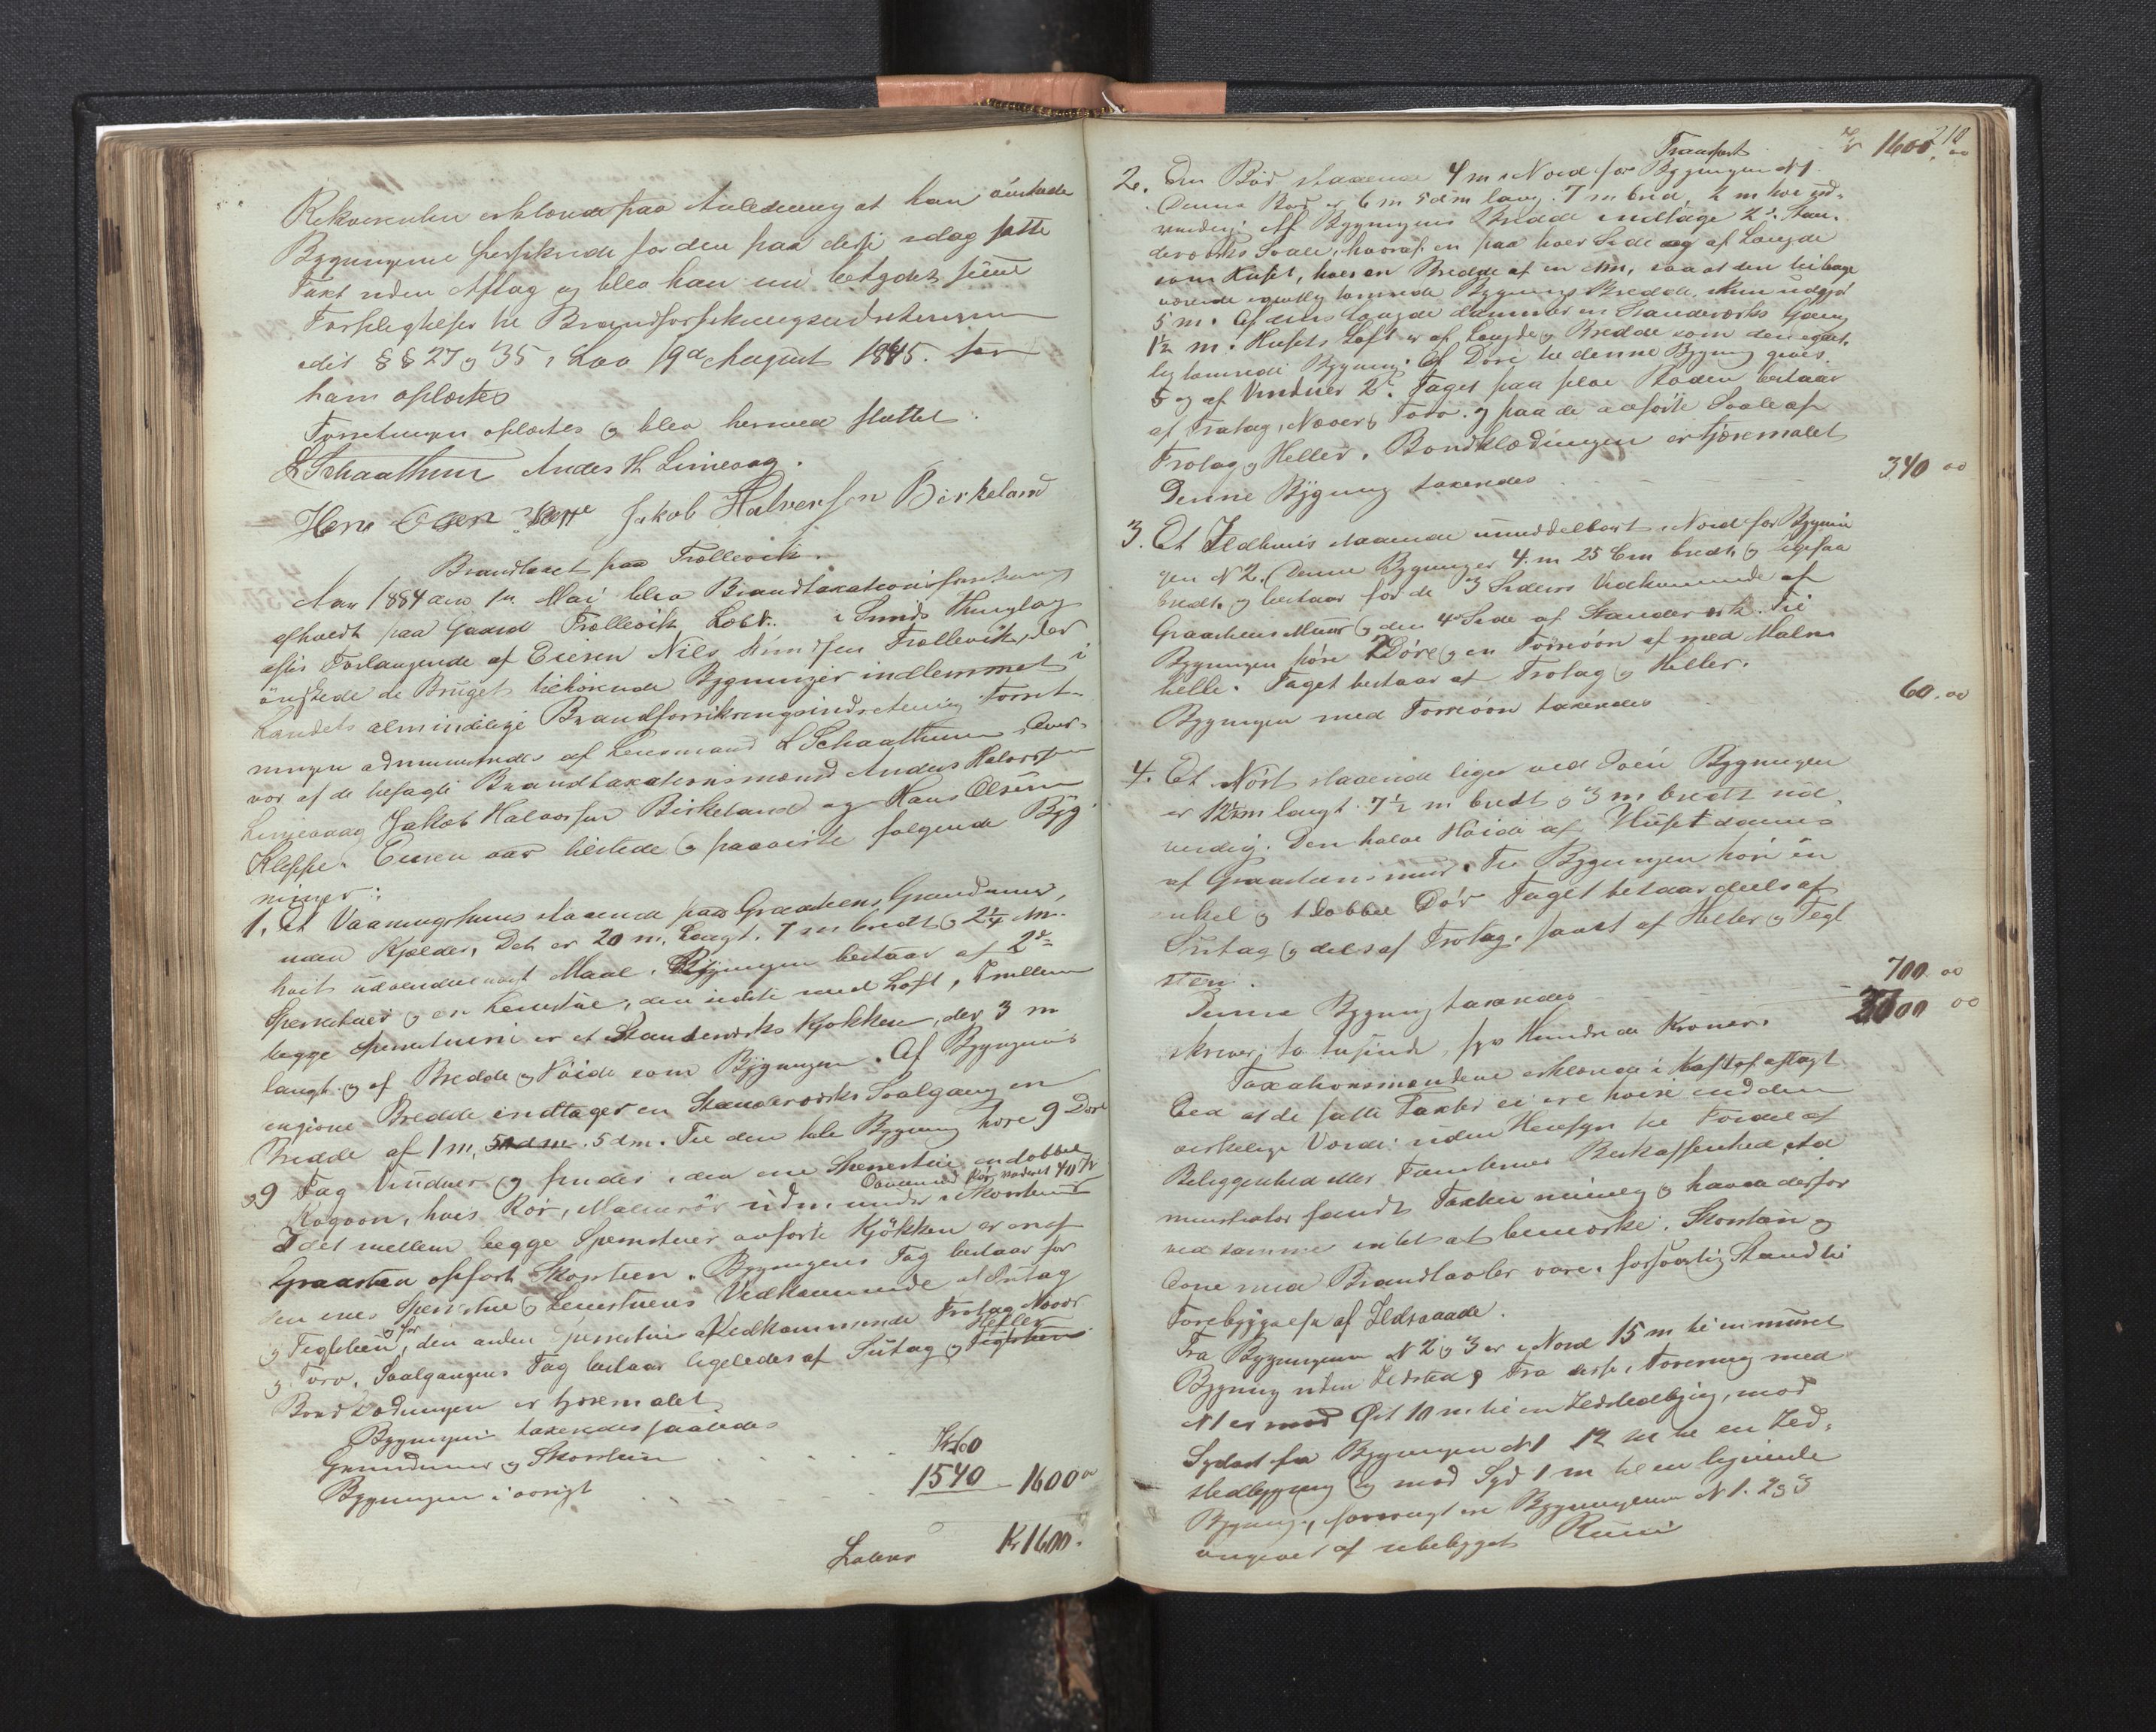 Rekvirenten erklærede paa Anledning at han ønskede
Bygningerne forsikrede for den paa disse idag satte
Taxt uden Afslag og blev han nu betydet sine
Forpligtelser til Brandforsikringsindretningen
§ § 27 og 35 i Lov 19de August 1845 som
ham oplæstes
Forretningen oplæstes og blev hermed sluttet.
L Schaathun Anders H. Limevaag.
Hans Olsen Jakob Halversen Birkeland
Brandtaxt paa Trællevik.
Aar 1884 den 1n Mai blev Brandtaxationsforretning
afholdt paa Gaard Trællevik Løbr. i Sunds Thinglag
efter Forlangende af Eieren Nils Trællevik, der
ønskede de Bruget tilhørende Bygninger indlemmet i
Landets almindelige Brandforsikringsindretning. Forret-
ningen administreredes af Lensmand L Schaathun, Over-
vær af de befagte Brandtaxationsmænd Anders Halvorsen
Limevaag, Jakob Halvorsen Birkeland og Hans Olsen
Kleppe. Eieren var tilstede og paaviste følgende Byg-
ninger:
1. Et Vaaningshuus staaende paa Graastens Grundmuur,
uden Kjælder. Det er 20 m. langt. 7 m bredt og 2¼ m.
høit udvendig Maal. Bygningen bestaar af 2de
Sperrestuer og en Lemstue, den sidste med Loft, Imellem
begge Sperrestuerne er et Standerværks Kjøkken, der 3 m
langt og af Bredde og Høide som Bygningen. Af Bygningens
Bredde indtager en Standerværks Svalgang en
Bredde af 1 m, 5 dm. Til den hele Bygning høre 9 Døre
og 9 Fag Vinduer og findes i den ene Sperrestue en dobbel
Ovn med Rør, vurderet 40 Kr
Kogovn, hvis Rør, Malmrør udmunder i Skorstenen
I det mellem begge Sperrestuer anførte Kjøkken er en af
Graasten opført Skorsten. Bygningens Tag bestaar for
den ene Sperrstue og Lemstuens Vedkommende af Sutag
og Teglsteen, og for den anden Sperrestues Vedkommende Trotag Næver
Heller
og Torv. Svalgangens Tag bestaar ligeledes af Sutag og Teglsteen
Bordklædningen er tjæremalet
Bygningen taxeredes saaledes
Grundmuur og Skorsteen . . . . Kr 60
Bygningen i øvrigt . . . . 1540 – 1600 00
Lateris Kr 1600.
210
Transport Kr 1600.00
2. En Bod staaende 4 m i Nord for Bygningen N 1.
Denne Bod er 6 m 5 dm lang. 7 m bred, 2 m høi ud-
vendig. Af Bygningens Bredde indtage 2de Stan-
derværks Svale, hvoraf en paa hver Side og af Længde
som Huset, hver en Bredde af en m, saa at den tilbage
værende egentlig tømrede Bygnings Bredde kun udgjør
5 m. Af dens Længde danner en Standerværks Gang
1½ m. Husets Loft er af Længde og Bredde som den egent-
lig tømrede Bygning. Af Døre til denne Bygning gives
5 og af Vinduer 2. Taget paa selve Boden bestaar
af Trotag, Næver og Torv. og paa de anførte Svale af
Trotag og Heller. Bordklædningen er tjæremalet
Denne Bygning taxeredes 340 00
3. Et Ildhuus staaende umiddelbart i Nord for Bygnin
gen N 2. Denne Bygning er 4. m 25 Cm bredt, og ligesaa
bredt, og bestaar for de 3 Siders Vedkommende af
Graasteens Muur og den 4de Side af Standerværk. Til
Bygningen høre 2 Døre og en Tørreovn af med Malm
helle. Taget bestaar af Trotag og Heller.
Bygningen med Tørreovn taxeredes 60.00
4. Et Nøst staaende lige ved Søen Bygningen
er 12½ m langt. 7½ m bredt og 3 m bredt ud-
vendig. Den halve Høide af Huset dannes
af Graasteensmuur. Til Bygningen høre en
enkel og 1 dobbel Dør Taget bestaar deels af
Sutag og dels af Trotag, samt af Heller og Tegl
sten.
Denne Bygning taxeredes 700 00
2700 00
skriver to tusinde, syv Hundrede Kroner.
Taxationsmændene erklærede i Kraft af aflagt
Eed at de satte Taxter ei ere høiere end den
virkelige Værdi uden Hensyn til Fordeel af
Beliggenhed eller Tomternes Beskaffenhed, Ad
ministrator fandt Taxten rimelig og havde derfor
ved samme intet at bemærke. Skorsteen og
Ovne med Brandtavler vare i forsvarlig Stand til
Forebyggelse af Ildsvaade.
Fra Bygningerne N 2 og 3 er i Nord 15 m til en muret
Bygning uden Ildsted, Fra disse i Forening med
N 1 er mod Øst 10 m til en Ildstedbyg, mod
Sydost fra Bygningen N 1 12 m til en Ild-
stedbygning og mod Syd 1 m til en lignende
Bygning, forøvrigt ere Bygningerne N 1. 2 og 3
omgivet af ubebygget Rum